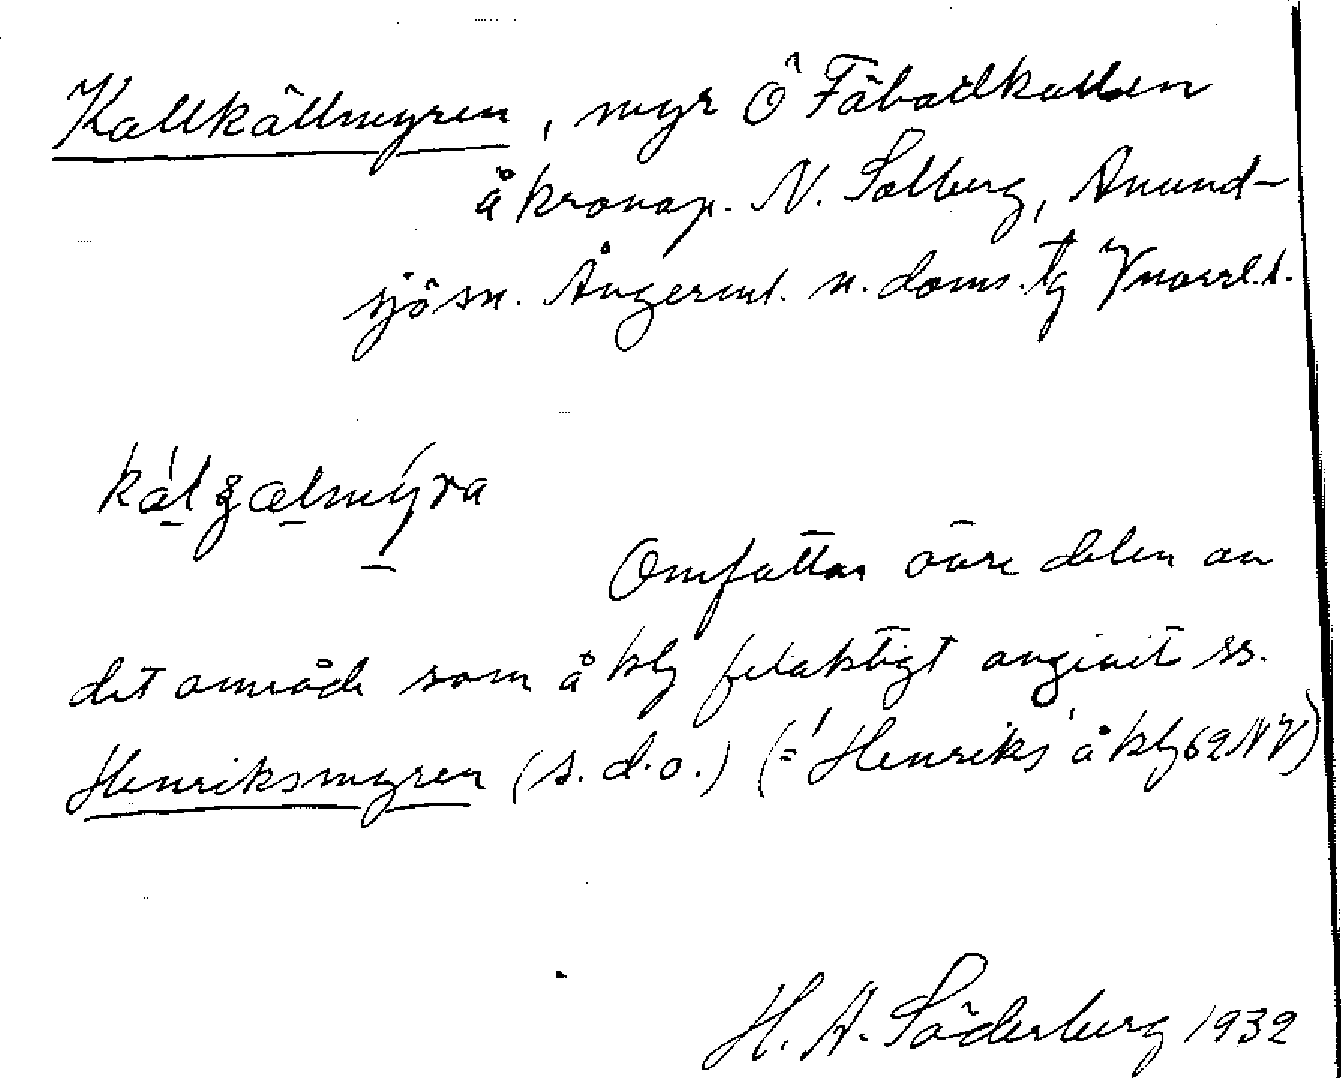 Kallkällmyren, myr Ö Fäbodkallen
å kronop. N. Solberg, Anund-
sjö sn. Ångerml. n. doms. tg Vnorrl. l.
Omfattar övre delen av
det område som å kbl felaktigt angivit ss.
Henriksmyren (s. d. o.) (= 'Henriks' å kbl 62 NV)
H. A. Söderberg 1932